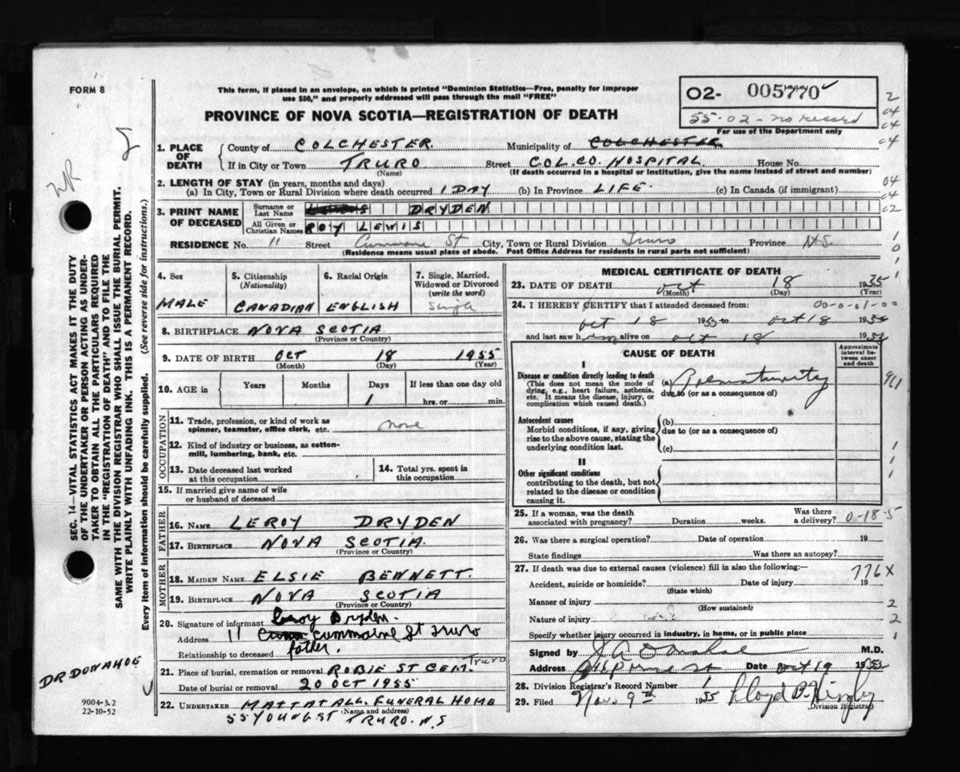 FORM 8
This form, if placed in an envelope, on which is printed "Dominion Statistics—Free, penalty for improper
use $50," and properly addressed will pass through the mail "FREE"
PROVINCE OF NOVA SCOTIA—REGISTRATION OF DEATH
02- 005770
55-02-no record
For use of the Department only
1. PLACE OF DEATH
County of COLCHESTER.
Municipality of COLCHESTER
If in City or Town TRURO Street COL. CO. HOSPITAL. House No.
(Name) (If death occurred in a hospital or institution, give the name instead of street and number)
2. LENGTH OF STAY (in years, months and days)
(a) In City, Town or Rural Division where death occurred 1 DAY (b) In Province LIFE. (c) In Canada (if immigrant)
3. PRINT NAME OF DECEASED
Surname or Last Name DRYDEN
All Given or Christian Names ROY LEWIS
RESIDENCE No. 11 Street St City, Town or Rural Division Truro Province N.S.
(Residence means usual place of abode. Post Office Address for residents in rural parts not sufficient)
4. Sex MALE
5. Citizenship (Nationality) CANADIAN
6. Racial Origin ENGLISH
7. Single, Married, Widowed or Divorced (write the word) Single
8. BIRTHPLACE NOVA SCOTIA
(Province or Country)
9. DATE OF BIRTH OCT 18 1955
(Month) (Day) (Year)
10. AGE in Years Months Days 1 If less than one day old hrs. or min.
OCCUPATION
11. Trade, profession, or kind of work as spinner, teamster, office clerk, etc. none
12. Kind of industry or business, as cotton-mill, lumbering, bank, etc.
13. Date deceased last worked at this occupation
14. Total yrs. spent in this occupation
15. If married give name of wife or husband of deceased
FATHER
16. NAME LEROY DRYDEN
17. BIRTHPLACE NOVA SCOTIA.
(Province or Country)
MOTHER
18. MAIDEN NAME ELSIE BENNETT.
19. BIRTHPLACE NOVA SCOTIA
(Province or Country)
20. Signature of informant Leroy Dryden.
Address 11 St Truro
Relationship to deceased father.
21. Place of burial, cremation or removal ROBIE ST CEM. Truro
Date of burial or removal 20 OCT 1955
22. UNDERTAKER MATTATALL FUNERAL HOME
(Name and address)
55 YOUNG ST TRURO. N.S
MEDICAL CERTIFICATE OF DEATH
23. DATE OF DEATH Oct 18 1955
(Month) (Day) (Year)
24. I HEREBY CERTIFY that I attended deceased from:
Oct 18 1955 to Oct 18 1955
and last saw him alive on Oct 18 1955
CAUSE OF DEATH
Approximate interval between onset and death
I
Disease or condition directly leading to death
(This does not mean the mode of dying, e.g., heart failure, asthenia, etc. It means the disease, injury, or complication which caused death.)
(a) Prematurity
due to (or as a consequence of)
Antecedent causes
Morbid conditions, if any, giving rise to the above cause, stating the underlying condition last.
(b)
due to (or as a consequence of)
(c)
II
Other significant conditions
contributing to the death, but not related to the disease or condition causing it.
25. If a woman, was the death associated with pregnancy? Duration weeks. Was there a delivery? 0-18-5
26. Was there a surgical operation? Date of operation 19
State findings Was there an autopsy?
27. If death was due to external causes (violence) fill in also the following:— 776X
Accident, suicide or homicide? Date of injury 19
(State which)
Manner of injury
(How sustained)
Nature of injury
Specify whether injury occurred in industry, in home, or in public place
Signed by J A Donahoe M.D.
Address Date Oct 19 1955
28. Division Registrar's Record Number 1
29. Filed Nov. 9th 1955 Lloyd
Division Registrar
SEC. 14—VITAL STATISTICS ACT MAKES IT THE DUTY
OF THE UNDERTAKER OR PERSON ACTING AS UNDER-
TAKER TO OBTAIN ALL THE PARTICULARS REQUIRED
IN THE "REGISTRATION OF DEATH" AND TO FILE THE
SAME WITH THE DIVISION REGISTRAR WHO SHALL ISSUE THE BURIAL PERMIT.
WRITE PLAINLY WITH UNFADING INK. THIS IS A PERMANENT RECORD.
Every item of information should be carefully supplied. (See reverse side for instructions.)
DR DONAHOE
9004-3.2
22-10-52